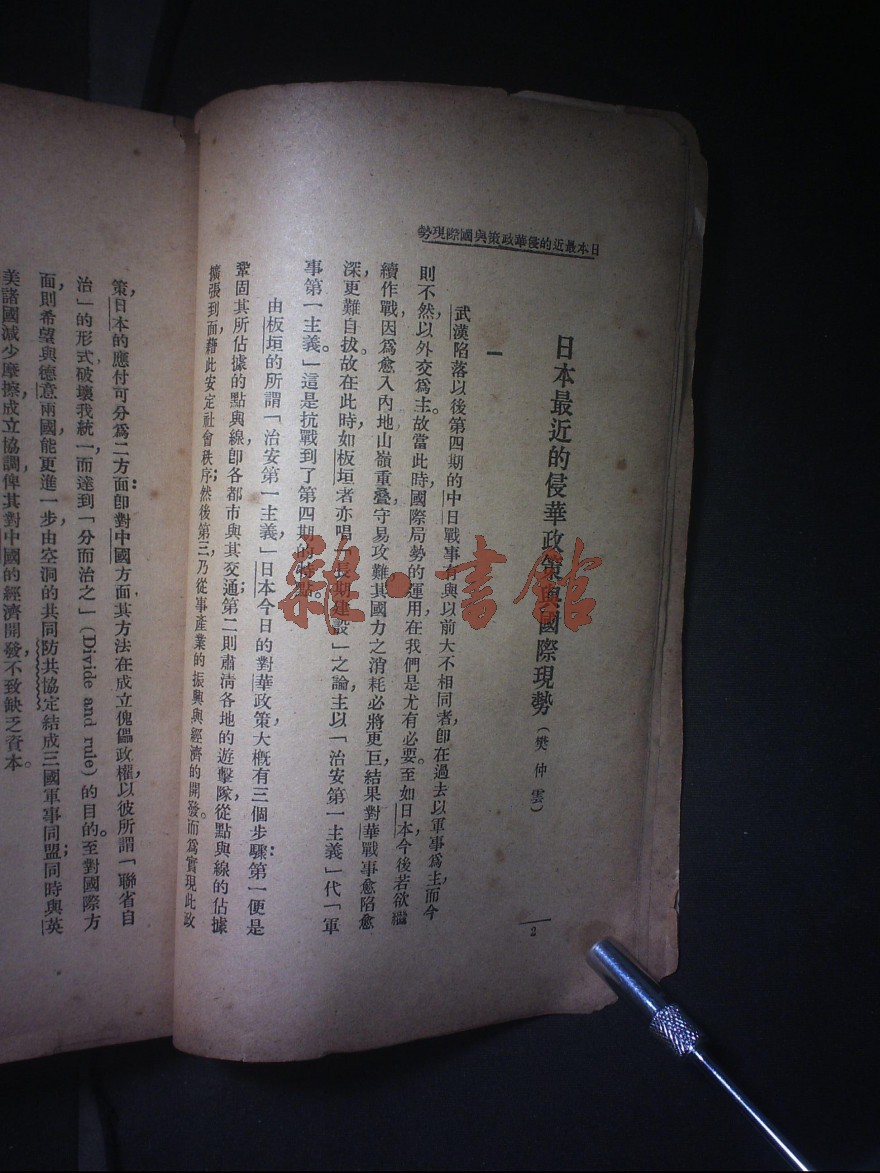 日本最近的侵華政策與國際現勢
日本最近的侵華政策與國際現勢（樊仲雲）
一
武漢陷落以後第四期的中日戰事有與以前大不相同者，卽在過去以軍事爲主而今
則不然，以外交爲主。故當此時，國際局勢的運用，在我們是尤有必要。至如日本，今後若欲繼
續作戰，因爲愈入內地，山嶺重疊，守易攻難，其國力之消耗必將更巨，結果對華戰事愈陷愈
深，更難自拔。故在此時，如板垣者亦唱「長期建設」之論，主以「治安第一主義」代「軍
事第一主義。」這是抗戰到了第四期的特點。
由板垣的所謂「治安第一主義，」日本今日的對華政策大槪有三個步驟：第一便是
鞏固其所佔據的點與線，卽各都市與其交通；第二則肅清各地的遊擊隊，從點與線的佔據
擴張到面，藉此安定社會秩序；然後第三，乃從事產業的振興與經濟的開發。而爲實現此政
2
策，日本的應付可分爲二方面：卽對中國方面，其方法在成立傀儡政權，以彼所謂「聯省自
治」的形式，破壞我統一，而達到「分而治之」（Divide and rule）的目的。至對國際方
面，則希望與德意兩國能更進一步，由空洞的共同防共協定，結成三國軍事同盟；同時與英
美諸國減少摩擦，成立協調，俾其對中國的經濟開發，不致缺乏資本。
雜·書館